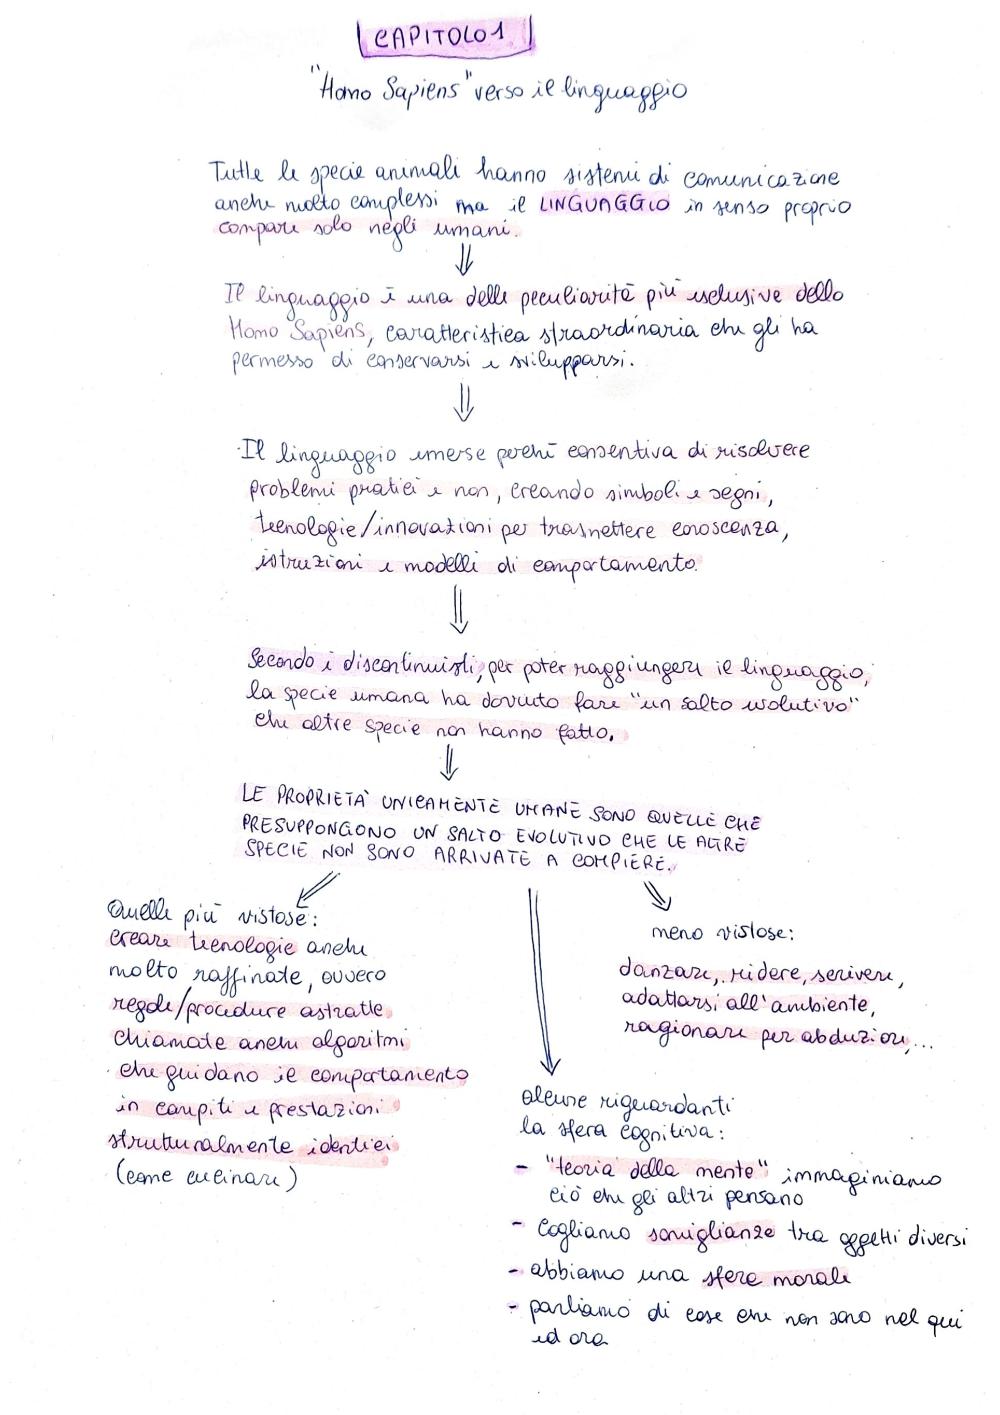 CAPITOLO 1
"Homo Sapiens" verso il linguaggio
Tutte le specie animali hanno sistemi di comunicazione
anche molto complessi ma il LINGUAGGIO in senso proprio
compare solo negli umani.
Il linguaggio è una delle peculiarità più esclusive dello
Homo Sapiens, caratteristica straordinaria che gli ha
permesso di conservarsi e svilupparsi.
Il linguaggio emerse perché consentiva di risolvere
problemi pratici e non, creando simboli e segni,
tecnologie/innovazioni per trasmettere conoscenza,
istruzioni e modelli di comportamento.
Secondo i discontinuisti, per poter raggiungere il linguaggio,
la specie umana ha dovuto fare "un salto evolutivo"
che altre specie non hanno fatto.
LE PROPRIETÀ UNICAMENTE UMANE SONO QUELLE CHE
PRESUPPONGONO UN SALTO EVOLUTIVO CHE LE ALTRE
SPECIE NON SONO ARRIVATE A COMPIERE.
Quelle più vistose:
creare tecnologie anche
molto raffinate, ovvero
regole/procedure astratte
chiamate anche algoritmi
che guidano il comportamento
in compiti e prestazioni
strutturalmente identici
(come cucinare)
meno vistose:
danzare, ridere, scrivere,
adattarsi all'ambiente,
ragionare per abduzione,...
alcune riguardanti
la sfera cognitiva:
- "teoria della mente" immaginiamo
ciò che gli altri pensano
- cogliamo somiglianze tra oggetti diversi
- abbiamo una sfera morale
- parliamo di cose che non sono nel qui
ed ora